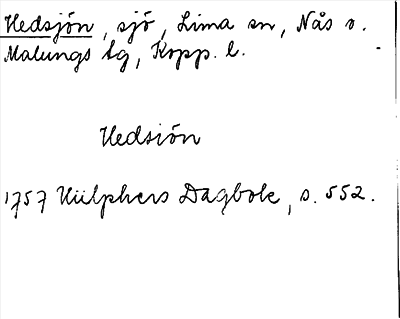 Hedsjön, sjö, Lima sn, Nås o.
Malungs tg, Kopp. l.
Hedsiön
1757 Hülphers Dagbok, s. 552.